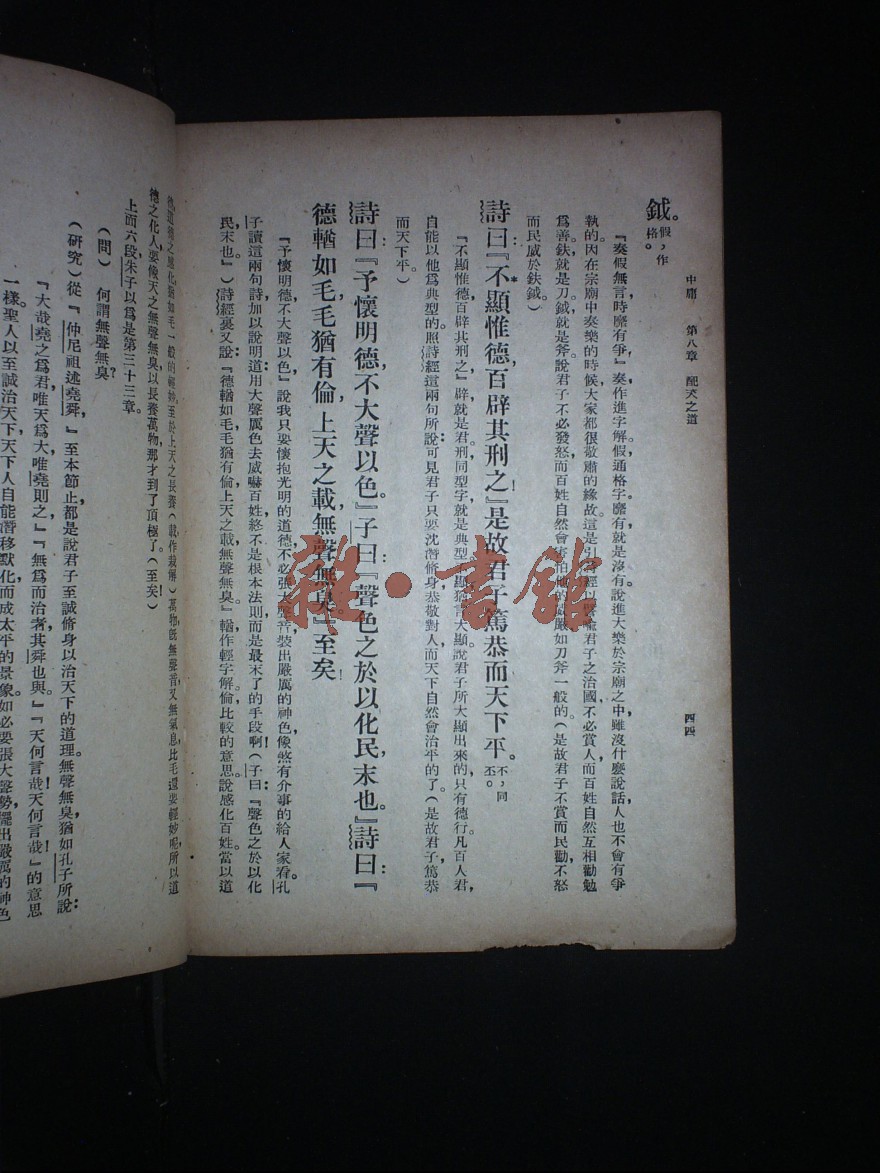 中庸　第八章　配天之道
四四
鉞。假,作格。
『奏假無言時靡有爭』奏作進字解假通格字靡有就是沒有說進大樂於宗廟之中雖沒什麼說話人也不會有爭
執的因在宗廟中奏樂的時候大家都很敬肅的緣故。這是引
君子之治國不必賞人而百姓自然互相勸勉
為善鈇就是刀鉞就是斧說君子不必發怒而百姓自然會
嚴如刀斧一般的。(是故君子不賞而民勸不怒
而民威於鈇鉞。)
詩曰:『不顯惟德,百辟其刑之!』是故君子篤恭而天下平。不,同丕。
『不顯惟德百辟其刑之』辟就是君刑同型字就是典型。
顯猶言大顯說君子所大顯出來的只有德行凡百人君
自能以他為典型的照詩經這兩句所說可見君子只要沈潛修身恭敬對人而天下自然會治平的了(是故君子篤恭
而天下平。)
詩曰:『予懷明德,不大聲以色。』子曰:『聲色之於以化民,末也。』詩曰:『
德輶如毛,毛猶有倫,上天之載,無聲無臭。』至矣!
『予懷明德不大聲以色』說我只要懷抱光明的道德不必張大
音裝出嚴厲的神色像煞有介事的給人家看孔
子讀這兩句詩加以說明道:用大聲厲色去威嚇百姓終不是根本法則而是最末了的手段啊!(子曰:『聲色之於以化
民末也』)詩經裏又說:『德輶如毛毛猶有倫上天之載無聲無臭』輶作輕字解倫比較的意思說感化百姓當以道
德,道德之感化猶如毛一般的輕妙至於上天之長養(載作栽解)萬物既無聲音又無氣息比毛還要輕妙呢所以道
德之化人要像天之無聲無臭以長養萬物那才到了頂極了(至矣)
上而六段朱子以為是第三十三章。
(問)何謂無聲無臭?
(研究)從『仲尼祖述堯舜,』至本節止都是說君子至誠脩身以治天下的道理。無聲無臭猶如孔子所說
『大哉堯之為君唯天為大唯堯則之』『無為而治者其舜也與』『天何言哉天何言哉』的意思
一樣聖人以至誠治天下天下人自能潛移默化而成太平的景象如必要張大聲勢擺出嚴厲的神色
雜·書館